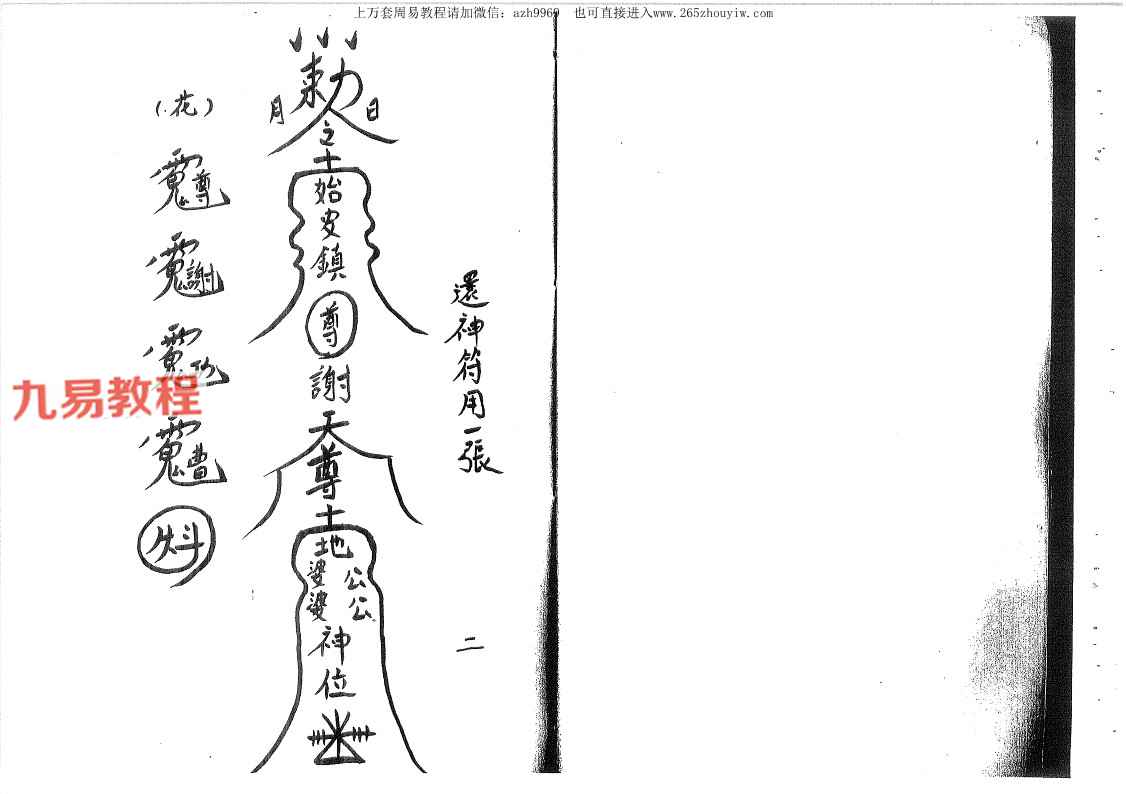 上万套周易教程请加微信：azh9969 也可直接进入www.265zhouyiw.com
還神符用一張
二
日
月
敕
令
土
始安鎮
尊
謝
天
尊
土
地
公公
婆婆
神位
(花)
尊
謝
曹
九易教程